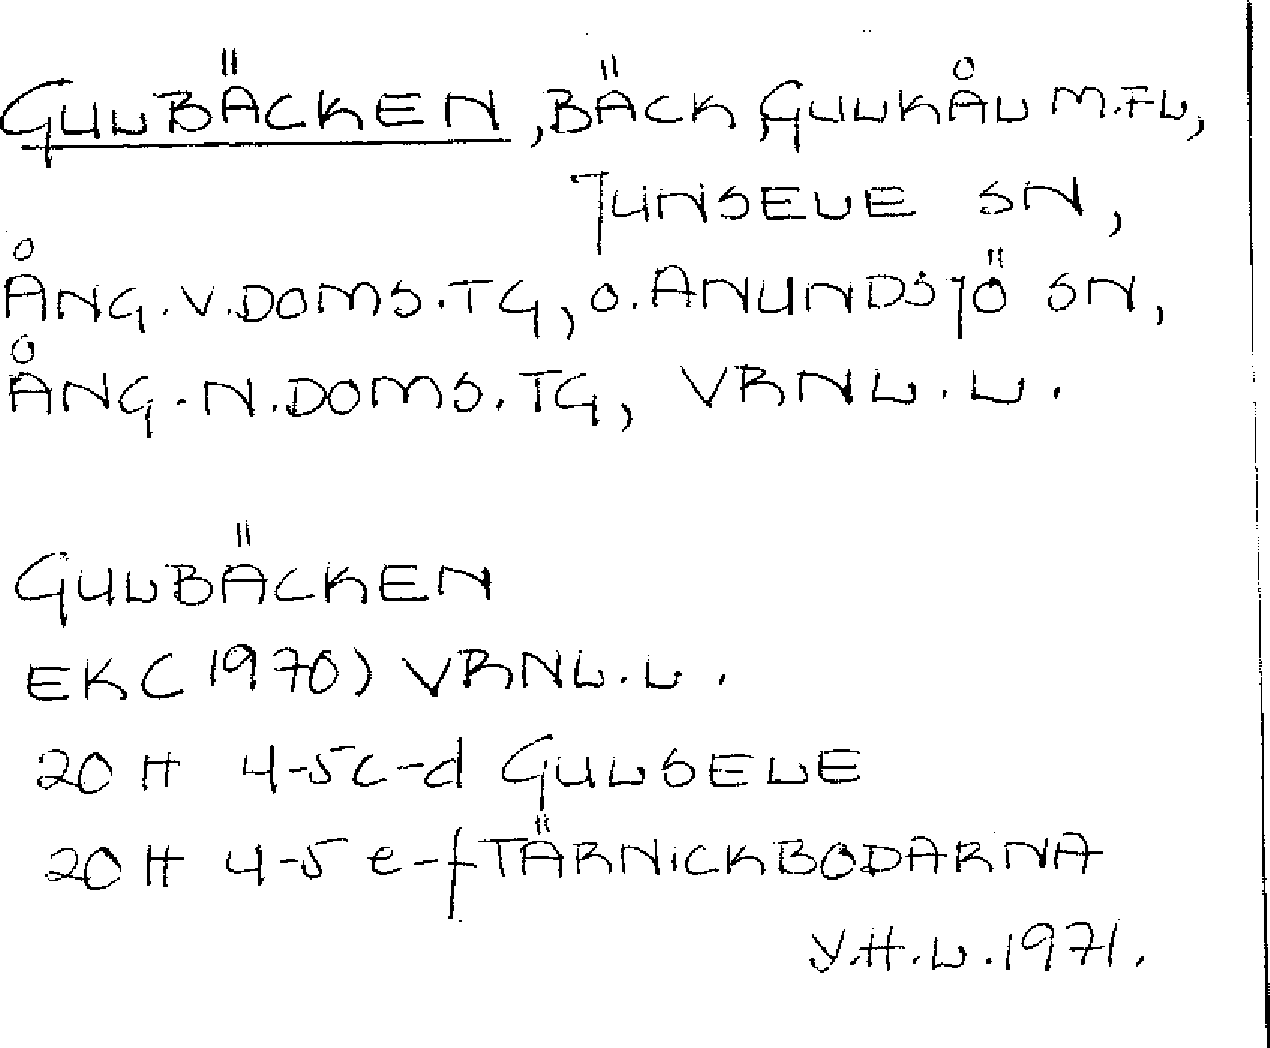 GULBÄCKEN, BÄCK, GULKÅL M.FL,
JUNSELE SN,
ÅNG.V.DOMS.TG, O.ANUNDSJÖ SN,
ÅNG.N.DOMS.TG, VRNL.L.
GULBÄCKEN
EK(1970) VRNL.L.
20 H 4-5c-d GULSELE
20 H 4-5 e-f TÄRNICKBODARNA
Y.H.L.1971.